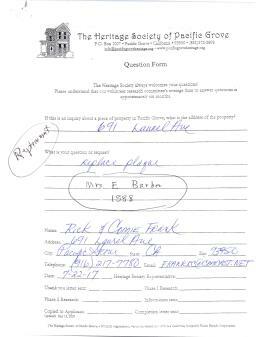 The Heritage Society of Pacific Grove
P.O. Box 1007 • Pacific Grove • California • 93950 • (831) 372-2898
Question Form
The Heritage Society always welcomes your questions!
Please understand that our volunteer research committee's average time to answer questions is
approximately six months.
If this is an inquiry about a piece of property in Pacific Grove, what is the address of the property?
691 Laurel Ave
What is your question or request?
replace plaque
Mrs. E Barber
1888
Name: Rick & Connie Frank
Address: 691 Laurel Ave
City: Pacific Grove State: CA Zip: 93950
Telephone: (916) 217-7750 Email:
Date: 7-22-17 Heritage Society Representative:
Thank you letter sent: Phase I Research:
Phase 2 Research: Information sent:
Copied to Applicant: Completion letter sent: